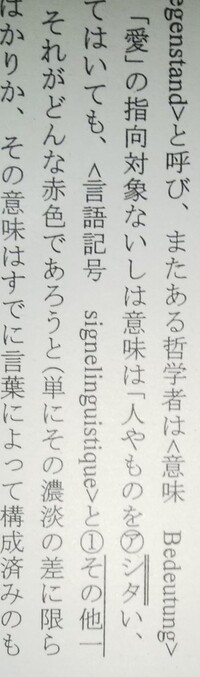 egenstand>と呼び、またある哲学者は<意味　Bedeutung>
「愛」の指向対象ないしは意味は「人やものを㋐シタい、
てはいても、<言語記号　signelinguistique>と①その他一
それがどんな赤色であろうと(単にその濃淡の差に限ら
ばかりか、その意味はすでに言葉によって構成済みのも